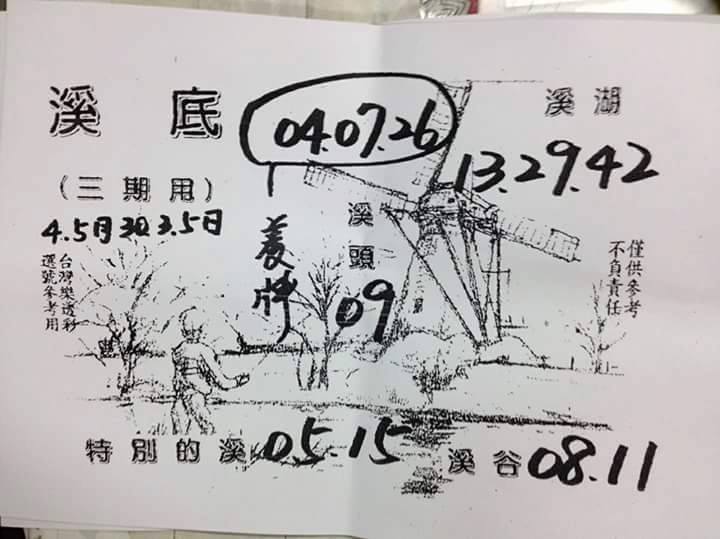 溪底
04.07.26
溪湖
13.29.42
(三期用)
4.5月30.3.5日
溪頭
09
台灣樂透彩
選號參考用
僅供參考
不負責任
特別的溪 05.15
溪谷 08.11